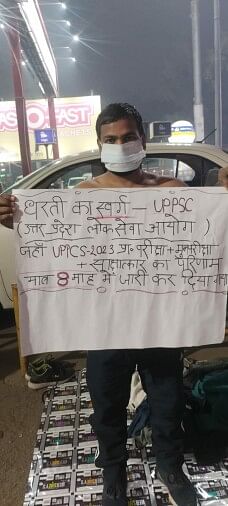 FAST
धरती का स्वर्ग — UPPSC
(उत्तर प्रदेश लोकसेवा आयोग)
जहाँ UPPCS-2023 प्रा० परीक्षा + मुख्य परीक्षा
+ साक्षात्कार का परिणाम
मात्र 8 माह में जारी कर दिया गया